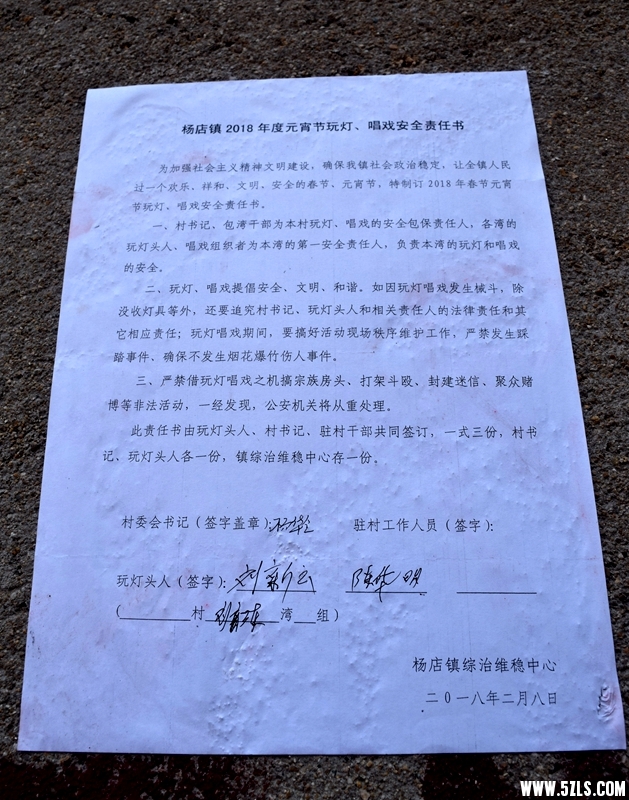 杨店镇2018年度元宵节玩灯、唱戏安全责任书
为加强社会主义精神文明建设，确保我镇社会政治稳定，让全镇人民
过一个欢乐、祥和、文明、安全的春节、元宵节，特制订2018年春节元宵
节玩灯、唱戏安全责任书。
一、村书记、包湾干部为本村玩灯、唱戏的安全包保责任人，各湾的
玩灯头人、唱戏组织者为本湾的第一安全责任人，负责本湾的玩灯和唱戏
的安全。
二、玩灯、唱戏提倡安全、文明、和谐。如因玩灯唱戏发生械斗，除
没收灯具等外，还要追究村书记、玩灯头人和相关责任人的法律责任和其
它相应责任；玩灯唱戏期间，要搞好活动现场秩序维护工作，严禁发生踩
踏事件、确保不发生烟花爆竹伤人事件。
三、严禁借玩灯唱戏之机搞宗族房头、打架斗殴、封建迷信、聚众赌
博等非法活动，一经发现，公安机关将从重处理。
此责任书由玩灯头人、村书记、驻村干部共同签订，一式三份，村书
记、玩灯头人各一份，镇综治维稳中心存一份。
村委会书记（签字盖章）： 驻村工作人员（签字）：
玩灯头人（签字）：刘新云
（ 村 湾 组）
杨店镇综治维稳中心
二〇一八年二月八日
WWW.5ZLS.COM